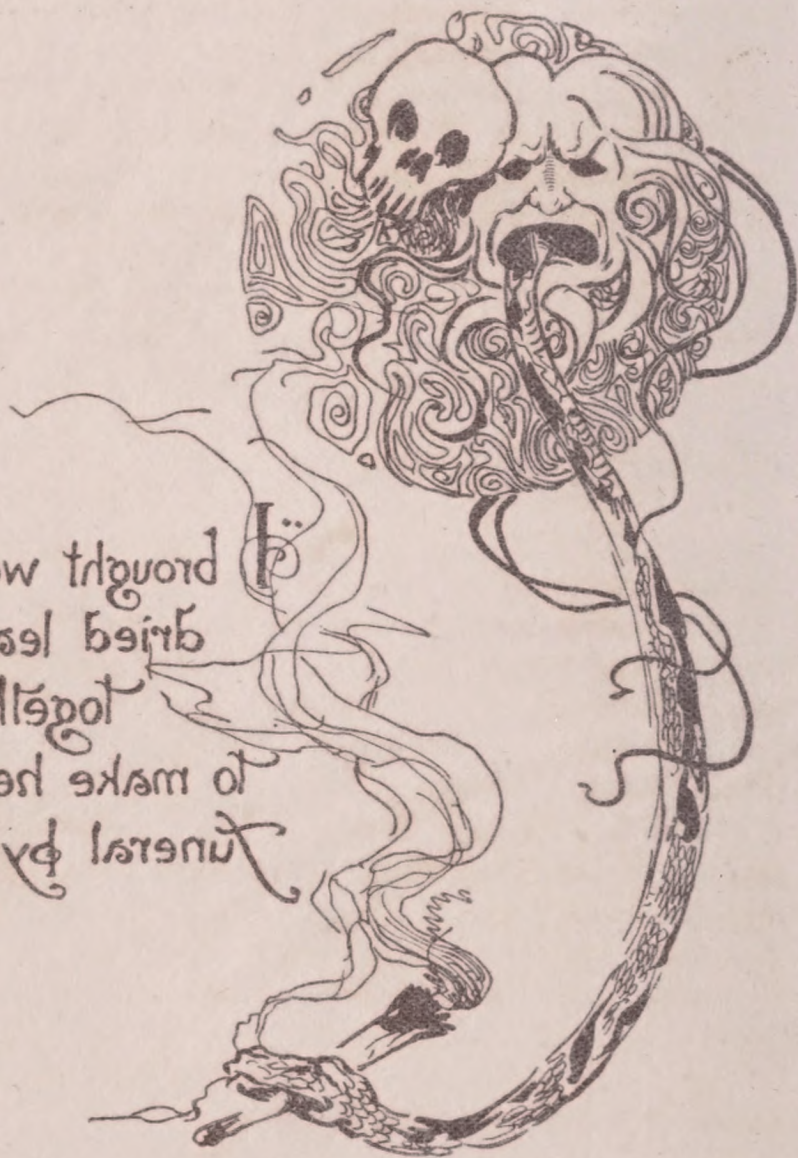 "I brought wo
dried lea
togeth
to make he
funeral by